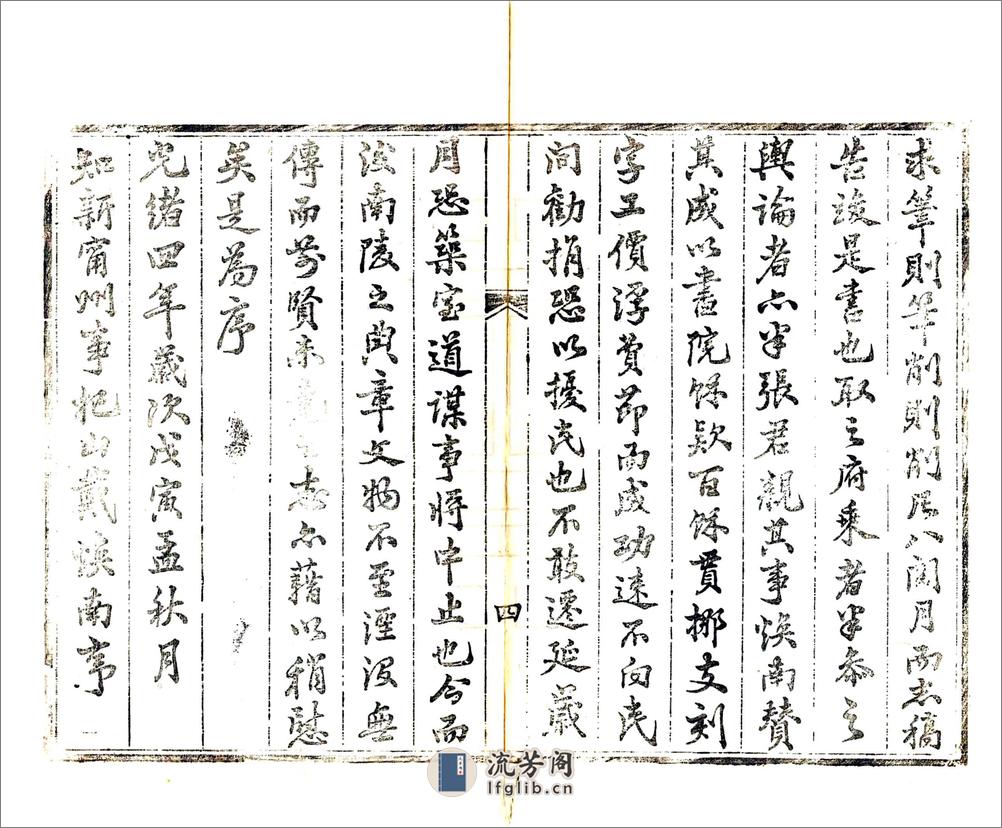 求筆則筆削則削凡八閱月而志稿
告竣是書也取之府乘者半叅之
輿論者亦半張君親其事煥南贊
其成以書院餘欵百餘貫挪支刻
字工價浮費節而成功速不向民
間勸捐恐以擾民也不敢遷延歲
四
月恐築室道謀事將中止也今而
後南陵之典章文物不至湮沒無
傳而前賢未志亦藉以稍慰
矣是為序
光緒四年歲次戊寅孟秋月
知新甯州事杞山戴煥南序
流芳阁
lfglib.cn